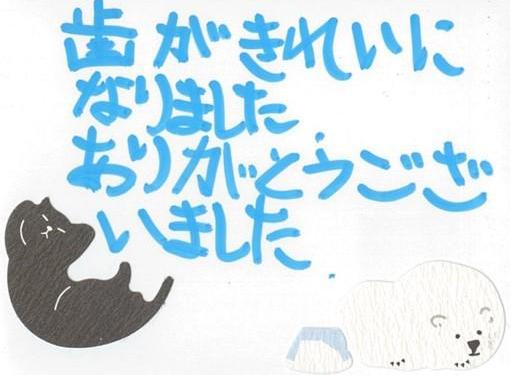 歯がきれいに
なりました
ありがとうござ
いました